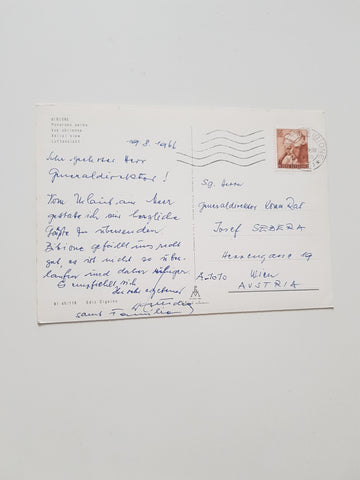 BIBIONE
Panorama aereo
Vue aérienne
Aerial view
Luftansicht
19.8.1966
Sehr geehrter Herr
Generaldirektor!
Vom Urlaub am Meer
gestatte ich mir herzliche
Grüße zu übersenden.
Bibione gefällt uns recht
gut, es ist nicht so über-
laufen und daher ruhiger.
Es empfiehlt sich
Ihr sehr ergebener
samt Familie
Sg. Herrn
Generaldirektor Komm. Rat
Josef SEBERA
Hessengasse 19
A-1010 Wien
AUSTRIA
Ediz.